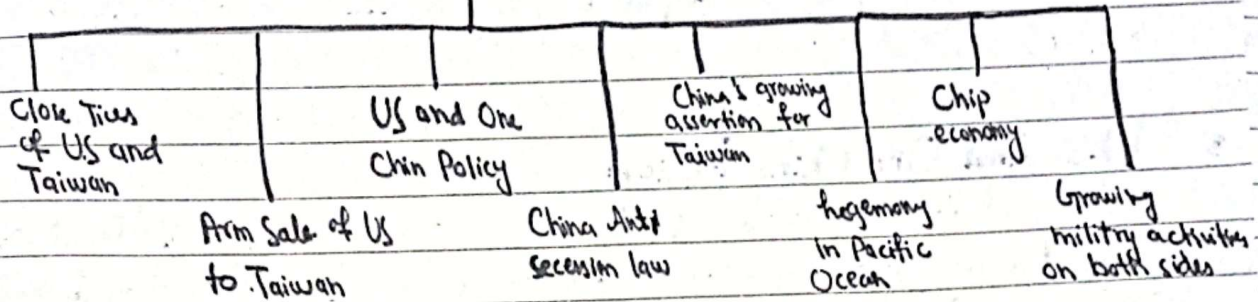 Close Ties
of U.S and
Taiwan
Arm Sale of US
to Taiwan
US and One
Chin Policy
China Anti
secession law
China's growing
assertion for
Taiwan
hegemony
in Pacific
Ocean
Chip
economy
Growing
militry activities
on both sides